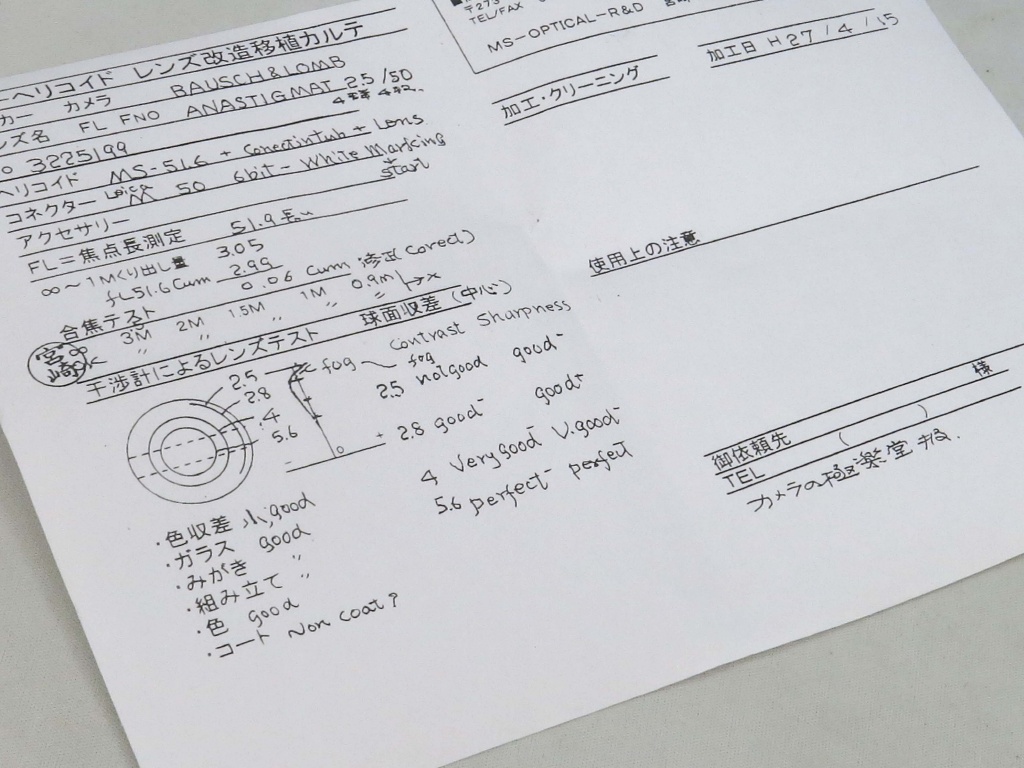 ヘリコイド レンズ改造移植カルテ
カー カメラ BAUSCH&LOMB
ズ名 FL FNO ANASTIGMAT 2.5/50
3225199
ヘリコイド MS-51.6 + Conectintub + Lens
コネクター Leica M 50 6bit- White Marking
アクセサリー start
FL=焦点長測定 51.9
∞~1Mくり出し量 3.05
fL51.6Cum 2.99
0.06 Cum 修正(Corect)
合焦テスト 3M 2M 1.5M 1M 0.9M
〃 〃 〃 〃 〃
宮崎
干渉計によるレンズテスト 球面収差(中心)
2.5
2.8
4
5.6
fog
- 0 +
Contrast Sharpness
fog
2.5 notgood good-
2.8 good- good+
4 Verygood V.good-
5.6 perfect perfect
・色収差 小,good
・ガラス good
・みがき 〃
・組み立て 〃
・色 good
・コート Non coat?
〒273
TEL/FAX
MS-OPTICAL-R&D
加工日 H27/4/15
加工・クリーニング
使用上の注意
様
御依頼先
TEL ( )
カメラの極楽堂